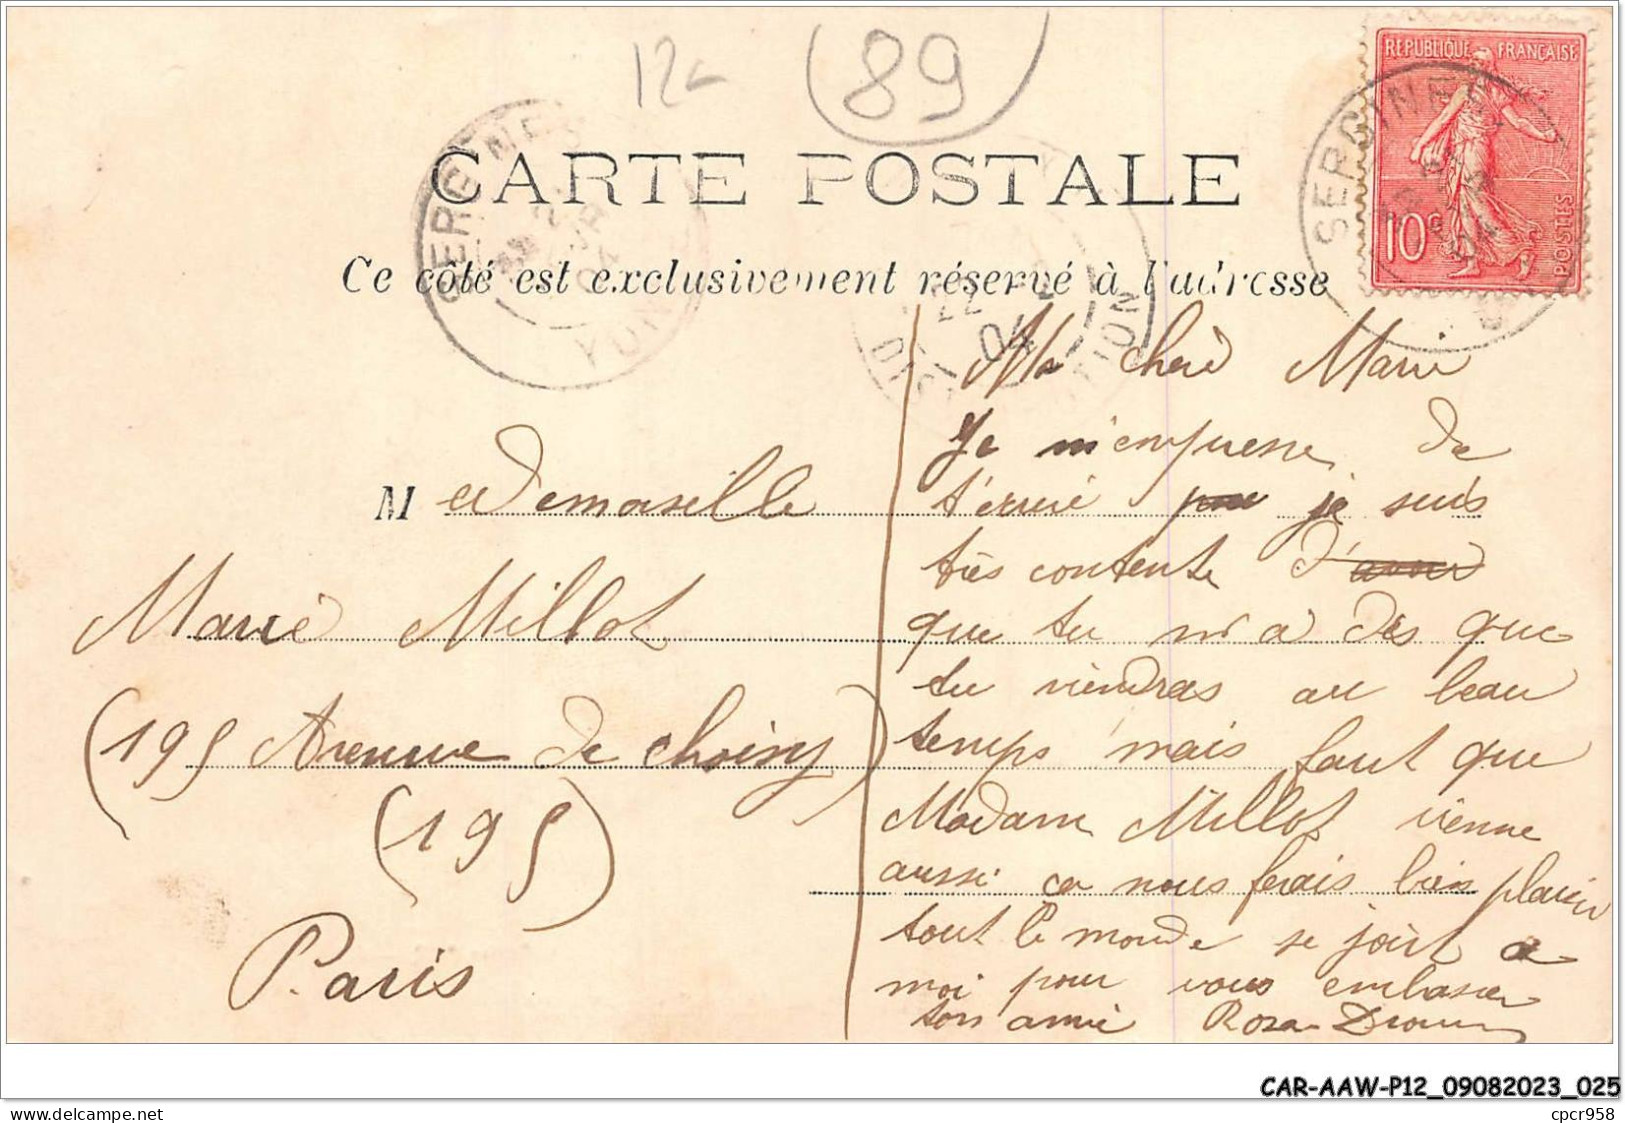 12
89
REPUBLIQUE FRANÇAISE
10c
POSTES
SERGINES
YONNE
04
CARTE POSTALE
Ce côté est exclusivement réservé à l'adresse
22
04
DISTRIBUTION
Mademoiselle
Marie Millot
(195 Avenue de Choisy)
(195)
Paris
Ma cherè Marie
Je m'empresse de
t'ecrire pour je suis
très contente d'avoir
que tu m'a dis que
tu viendras au beau
temps mais faut que
Madame Millot vienne
aussi ca nous ferais bien plaisir
tout le monde se joint a
moi pour vous embasser
ton amie Rosa
CAR-AAW-P12_09082023_025
delcampe.net
cpcr958